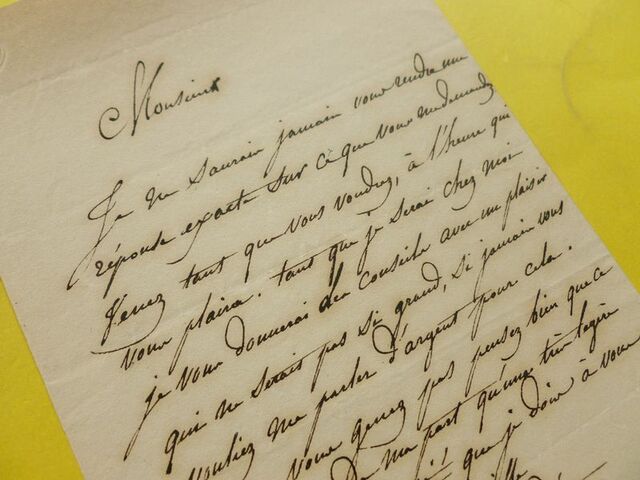 Monsieur
Je ne saurais jamais vous rendre une
réponse exacte sur ce que vous me demandez
Venez tant que vous voudrez, à l'heure qui
vous plaira. tant que je serai chez moi
je vous donnerai des conseils avec un plaisir
qui ne serait pas si grand, si jamais vous
vouliez me parler d'argent pour cela.
vous gênez pas pensez bien que ce
de ma part qu'une très légère
que je dois à votre